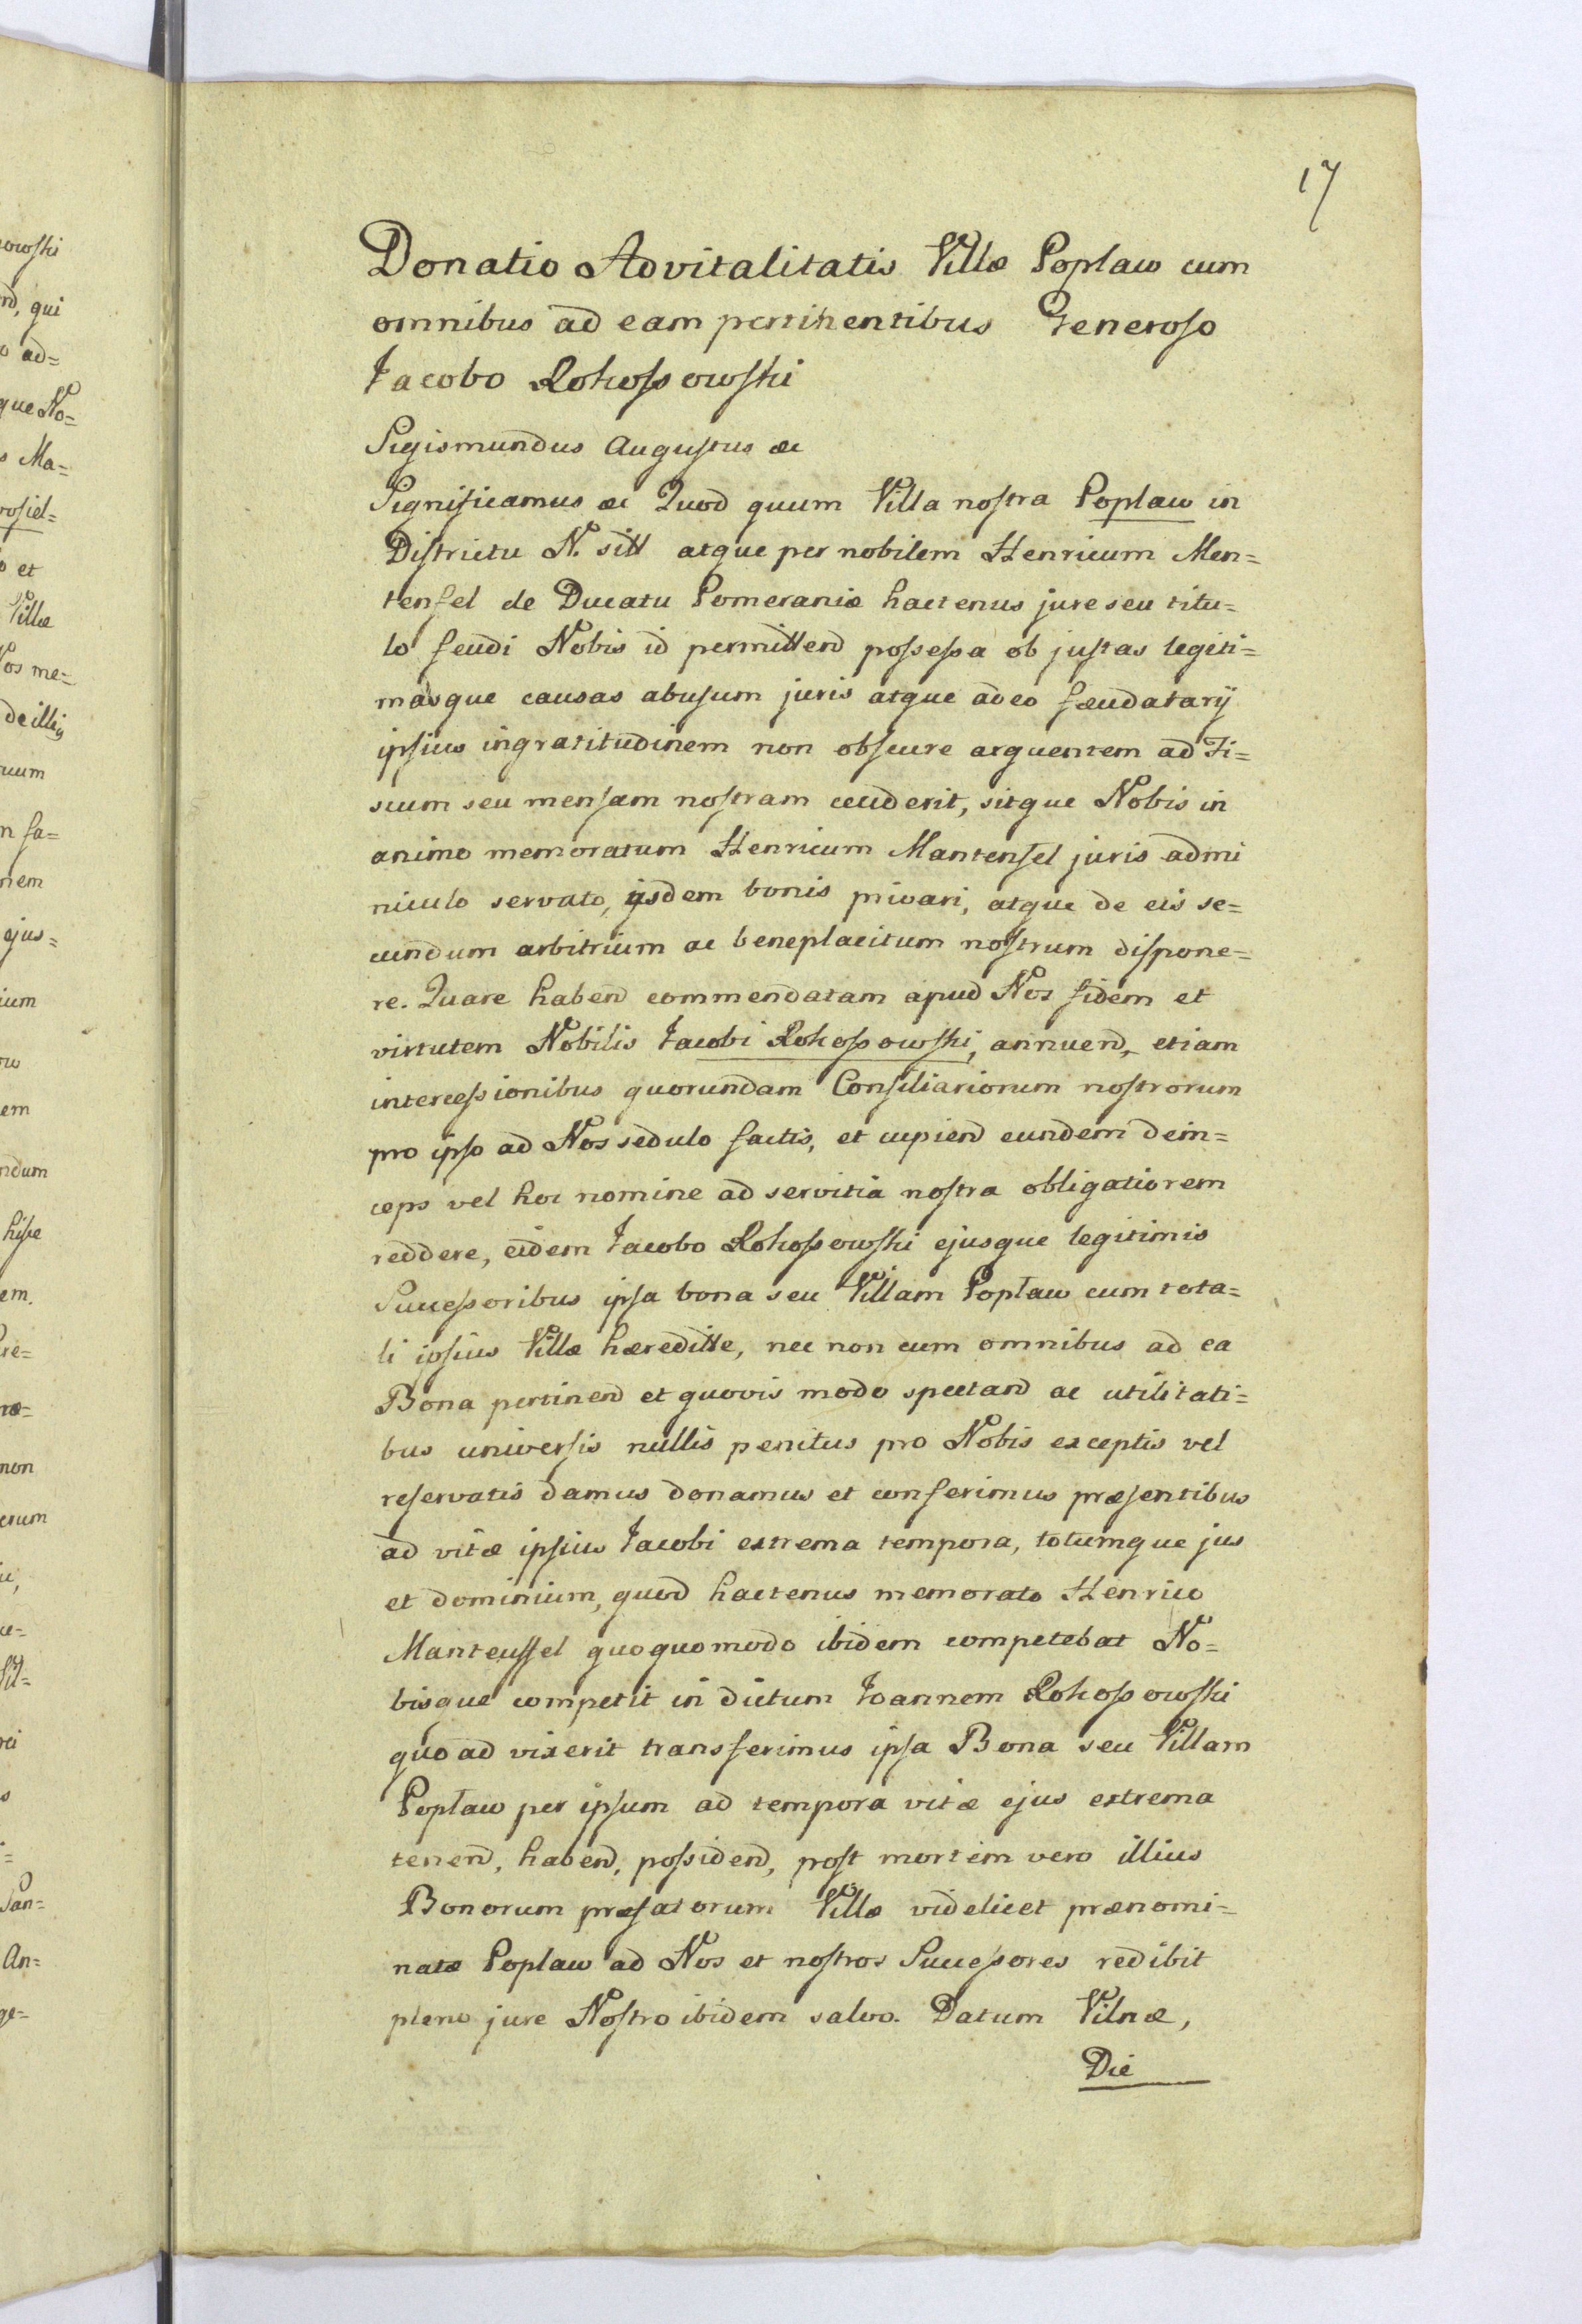 17
Donatio Advitalitatis Villæ Poplaw cum
omnibus ad eam pertinentibus Generoso
Jacobo Rokossowski
Sigismundus Augustus &c
Significamus &c Quod quum Villa nostra Poplaw in
Districtu N. sitt atque per nobilem Henricum Men=
tenfel de Ducatu Pomeraniæ hactenus jure seu titu=
lo feudi Nobis id permittend possessa ob justas legiti=
masque causas abusum juris atque adeo fæudatarij
ipsius ingratitudinem non obscure arguentem ad Fi=
scum seu mensam nostram ceciderit, sitque Nobis in
animo memoratum Henricum Mantenfel juris admi
niculo servato, ijsdem bonis privari, atque de eis se=
cundum arbitrium ac beneplacitum nostrum dispone=
re. Quare habend commendatam apud Nos fidem et
virtutem Nobilis Jacobi Rokossowski, annuend, etiam
intercessionibus quorundam Consiliariorum nostrorum
pro ipso ad Nos sedulo factis, et cupiend eundem dein=
ceps vel hoc nomine ad servitia nostra obligatiorem
reddere, eidem Jacobo Rokossowski ejusque legitimis
Successoribus ipsa bona seu Villam Poplaw cum tota=
li ipsius Villæ hæreditte, nec non cum omnibus ad ea
Bona pertinend et quovis modo spectand ac utilitati=
bus universis nullis penitus pro Nobis exceptis vel
reservatis damus donamus et conferimus præsentibus
ad vitæ ipsius Jacobi extrema tempora, totumque jus
et dominium, quod hactenus memorato Henrico
Manteuffel quoquomodo ibidem competebat No=
bisque competit in dictum Joannem Rokossowski
quoad vixerit transferimus ipsa Bona seu Villam
Poplaw per ipsum ad tempora vitæ ejus extrema
tenend, habend, possidend, post mortem vero illius
Bonorum præfatorum Villæ videlicet prænomi=
natæ Poplaw ad Nos et nostros Successores redibit
pleno jure Nostro ibidem salvo. Datum Vilnæ,
Die